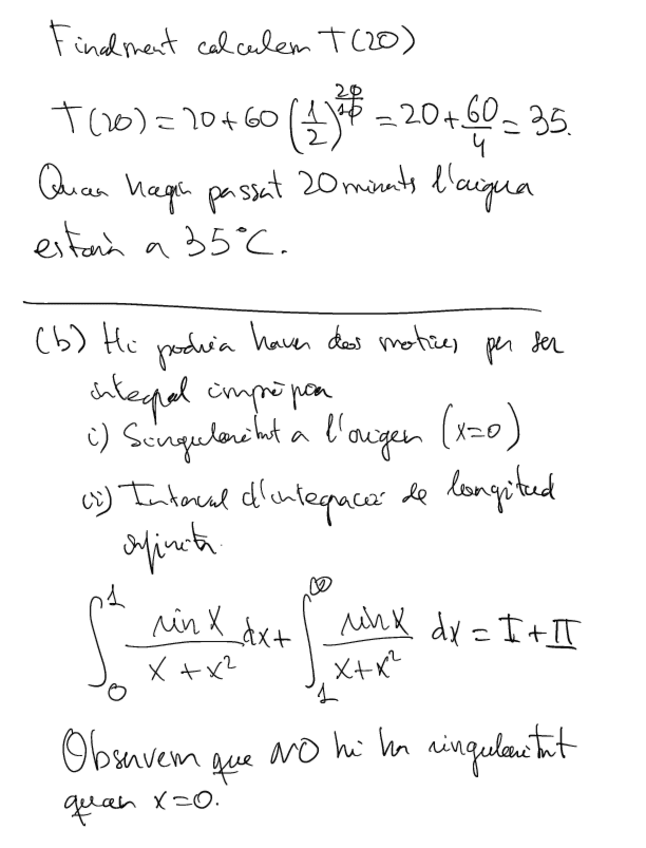 Finalment calculem T(20)
T(20) = 20 + 60 (1/2)^(20/10) = 20 + 60/4 = 35.
Quan hagin passat 20 minuts l'aigua
estarà a 35°C.
(b) Hi podria haver dos motius per ser
integral impròpia
i) Singularitat a l'origen (x=0)
ii) Interval d'integració de longitud
infinita.
∫_0^1 sin x / (x + x²) dx + ∫_1^∞ sin x / (x + x²) dx = I + II
Observem que NO hi ha singularitat
quan x=0.